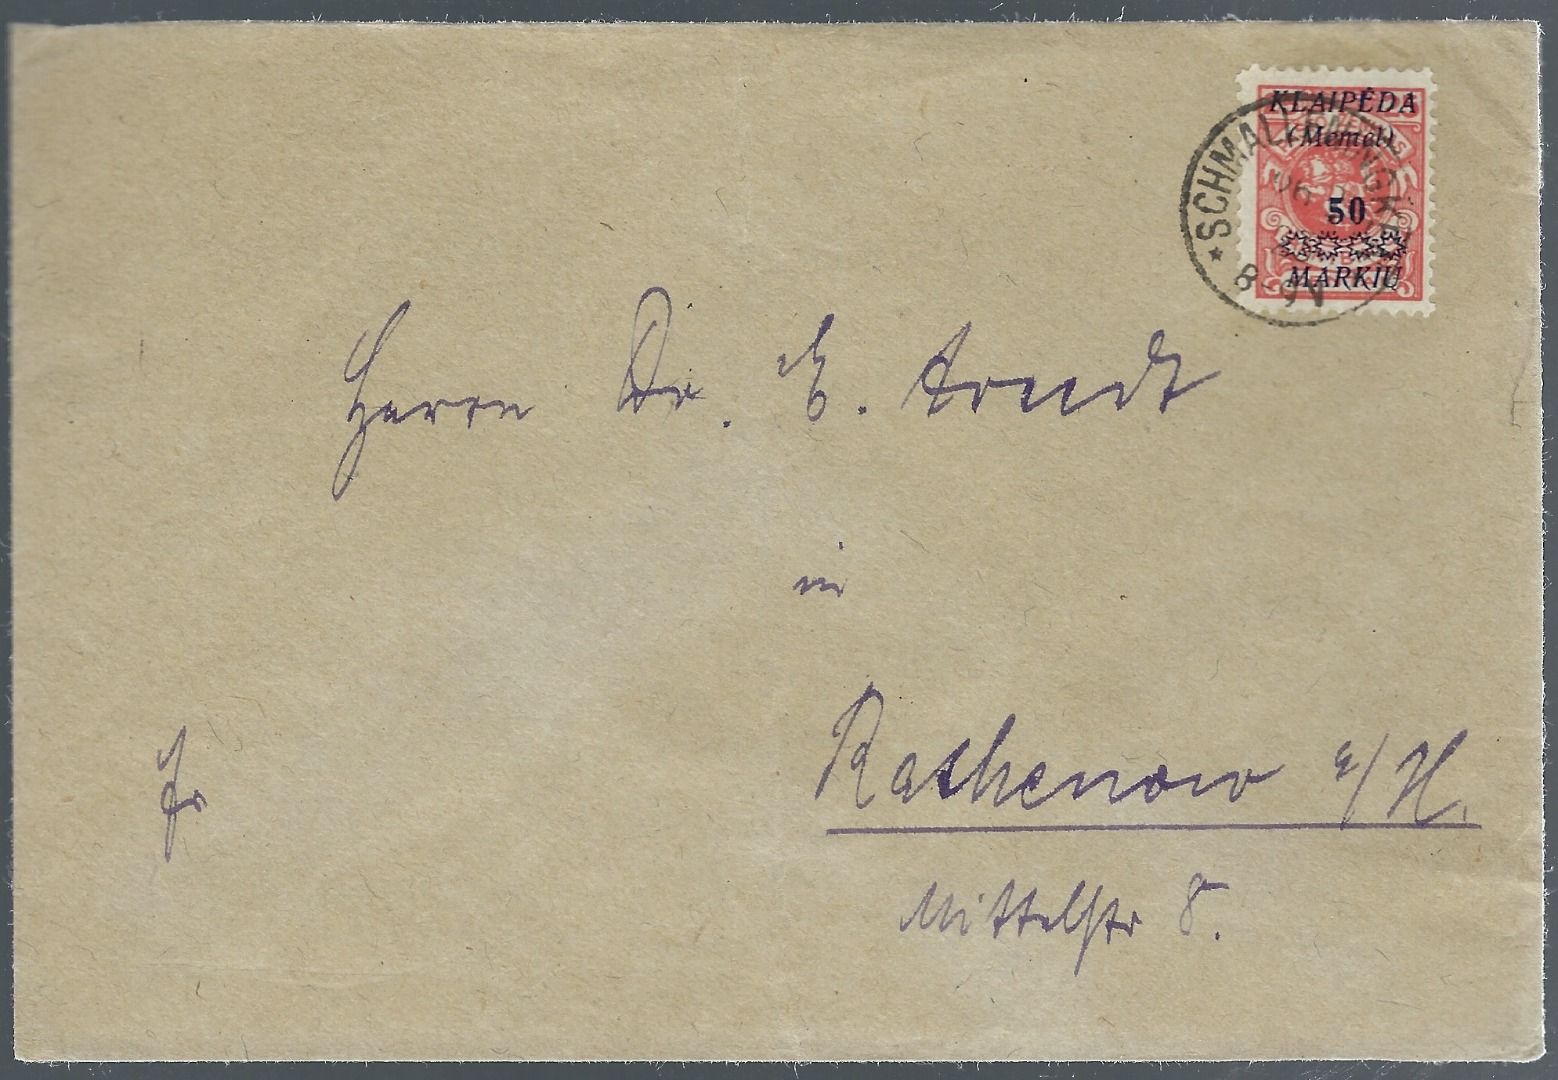 KLAIPĖDA
(Memel)
50
MARKIŲ
* SCHMALLENINGKEN
8-9V
Herrn Dr. E. Arndt
in
Rathenow a/H.
Mittelstr 8.
Fr